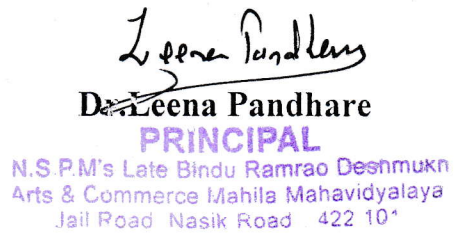 Leena Pandhare
Dr.Leena Pandhare
PRINCIPAL
N.S.P.M's Late Bindu Ramrao Deshmukh
Arts & Commerce Mahila Mahavidyalaya
Jail Road Nasik Road 422 101